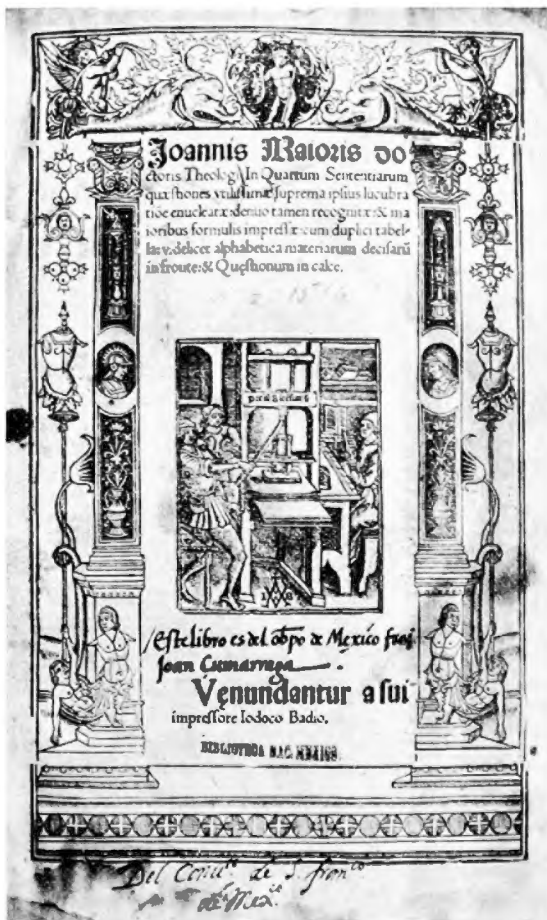 Joannis Maioris do
ctoris Theologi In Quartum Sententiarum
quæstiones vtilissimæ suprema ipsius lucubra
tiõe enucleatæ: denuo tamen recognitæ: & ma
ioribus formulis impressæ: cum duplici tabel-
la: videlicet alphabetica materiarum decisarũ
in fronte: & Quęstionum in calce.
Este libro es del obpo de Mexico fray
Joan Cumarraga
Vęnundantur a sui
impressore Iodoco Badio.
BIBLIOTECA NAC. MEXICO.
Del Convto. de S. franco
de Mexco